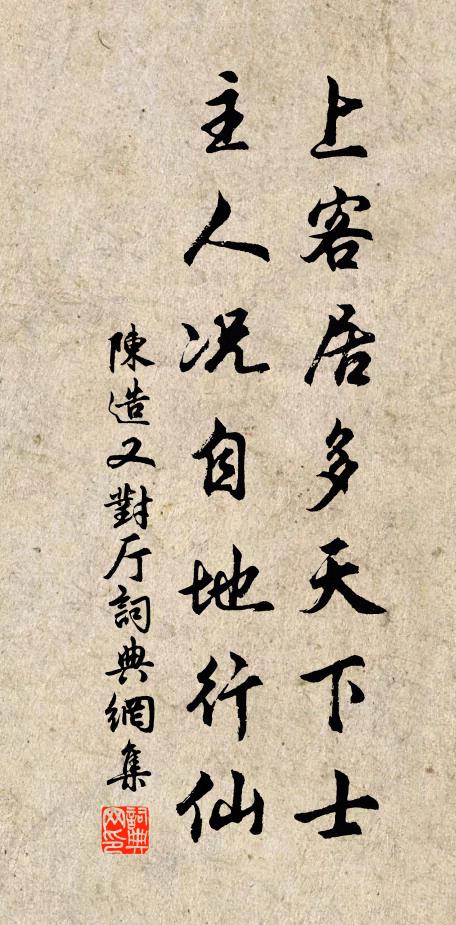 上客居多天下士
主人况自地行仙
陳造又對厅詞典網集
詞典网印